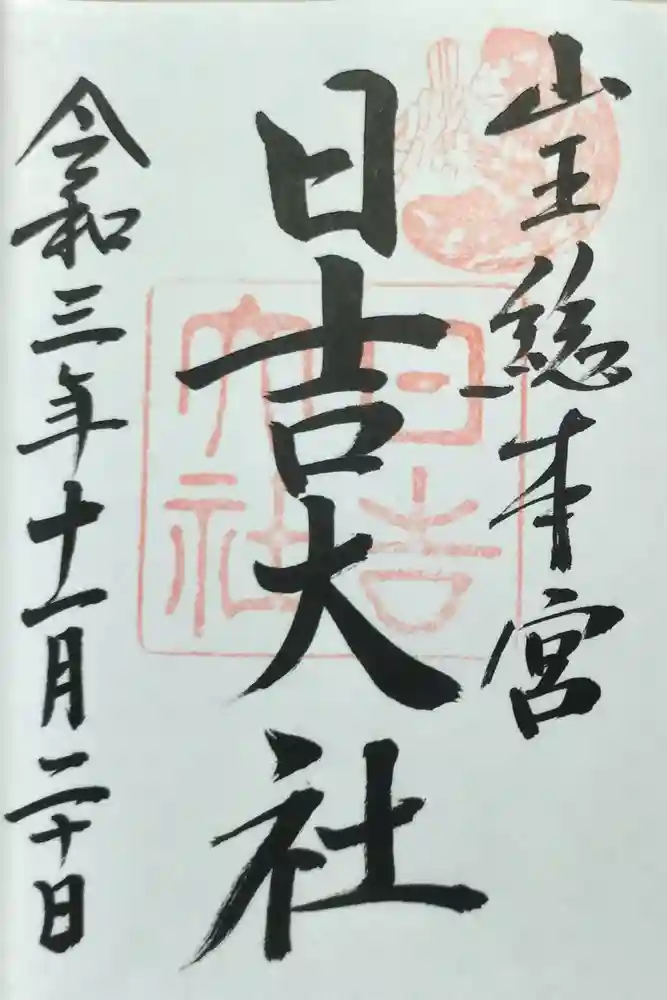 山王総本宮
日吉大社
日吉大社
令和三年十一月二十日